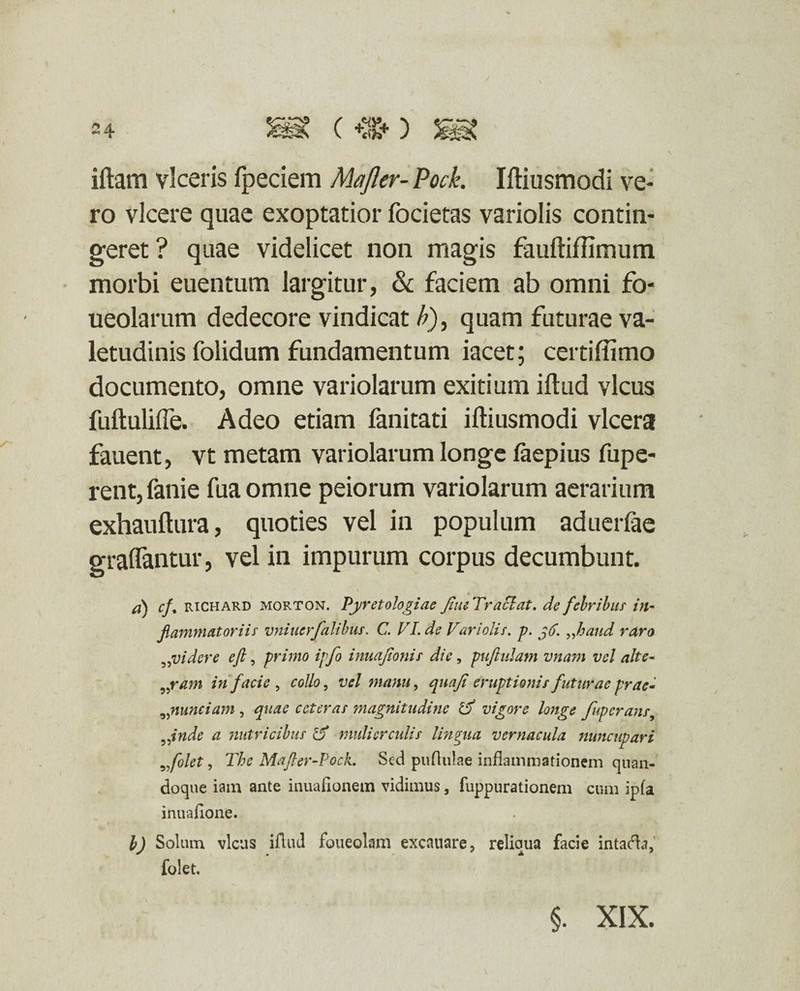 24 ( ) 
iſtam vlceris ſpeciem Maſter-Pock. Iſtiusmodi ve-
ro vlcere quae exoptatior ſocietas variolis contin-
geret? quae videlicet non magis fauſtiſſimum
morbi euentum largitur, & faciem ab omni fo-
ueolarum dedecore vindicat b), quam futurae va-
letudinis ſolidum fundamentum iacet; certiſſimo
documento, omne variolarum exitium iſtud vlcus
ſuſtuliſſe. Adeo etiam ſanitati iſtiusmodi vlcera
fauent, vt metam variolarum longe ſaepius ſupe-
rent, ſanie ſua omne peiorum variolarum aerarium
exhauſtura, quoties vel in populum aduerſae
graſſantur, vel in impurum corpus decumbunt.
a) cf. RICHARD MORTON. Pyretologiae ſiue Tractat. de febribus in-
flammatoriis vniuerſalibus. C. VI. de Variolis. p. 36. „haud raro
„videre eſt, primo ipſo inuaſionis die, puſtulam vnam vel alte-
„ram in facie, collo, vel manu, quaſi eruptionis futurae prae-
„nunciam, quae ceteras magnitudine & vigore longe ſuperans,
„inde a nutricibus & mulierculis lingua vernacula nuncupari
„ſolet, The Maſter-Pock. Sed puſtulae inflammationem quan-
doque iam ante inuaſionem vidimus, ſuppurationem cum ipſa
inuaſione.
b) Solum vlcus iſtud foueolam excauare, reliqua facie intacta,
ſolet.
§. XIX.